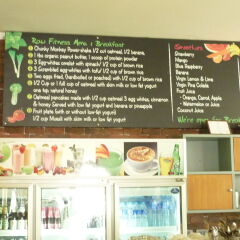 Raw Fitness Menu : Breakfast
Chunky Monkey Power-shake 1/2 cut oatmeal, 1/2 banana,
1 tbs organic peanut butter, 1 scoop of protein powder
3 Egg-whites omelet with spinach/ 1/2 cup of brown rice
3 Scrambled egg-whites with tofu/ 1/2 cup of brown rice
Two eggs fried, (hardboiled or poached) with 1/2 cup of brown rice
1/2 Cup or 1 full cup of oatmeal with skim milk or low fat yogurt
one tsp natural honey
Oatmeal pancakes made with 1/2 cup oatmeal 3 egg whites, cinnamon
& honey Served with low fat yogurt and banana or pineapple
Fruit plate (with or without low-fat yogurt)
1/2 cup Muesli with skim milk or low fat yogurt
Smoothies
Strawberry
Mango
Blue Raspberry
Banana
Virgin Lemon & Lime
Virgin Pina Colada
Fruit Juice
• Orange, Carrot, Apple
• Watermelon or Juice
Coconut Juice
We're open for Break